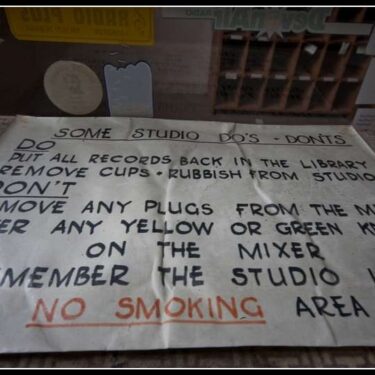 RADIO PLUS
DevonAir
RADIO
SOME STUDIO DO'S • DONTS
DO
PUT ALL RECORDS BACK IN THE LIBRARY
REMOVE CUPS • RUBBISH FROM STUDIO
DON'T
MOVE ANY PLUGS FROM THE M
ER ANY YELLOW OR GREEN K
ON THE MIXER
MEMBER THE STUDIO I
NO SMOKING AREA